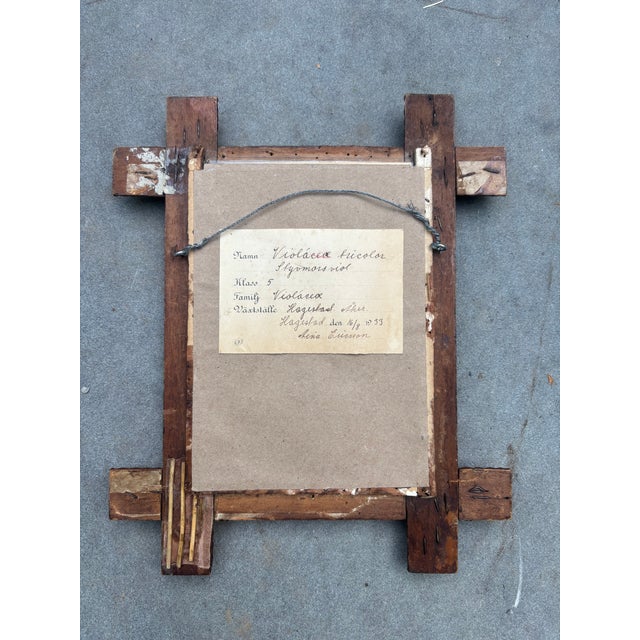 Namn Violácea tricolor
Styvmorsviol
Klass 5
Familj Violácea
Växtställe Hagestad Åker
Hagestad den 16/8 1933
Ericsson